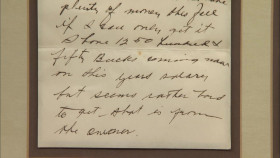 plenty of money this Fall
if I can only get it
I have 1200 hundred &
fifty Bucks coming
on this years salary
but seems rather hard
to get. that is from
the owner.